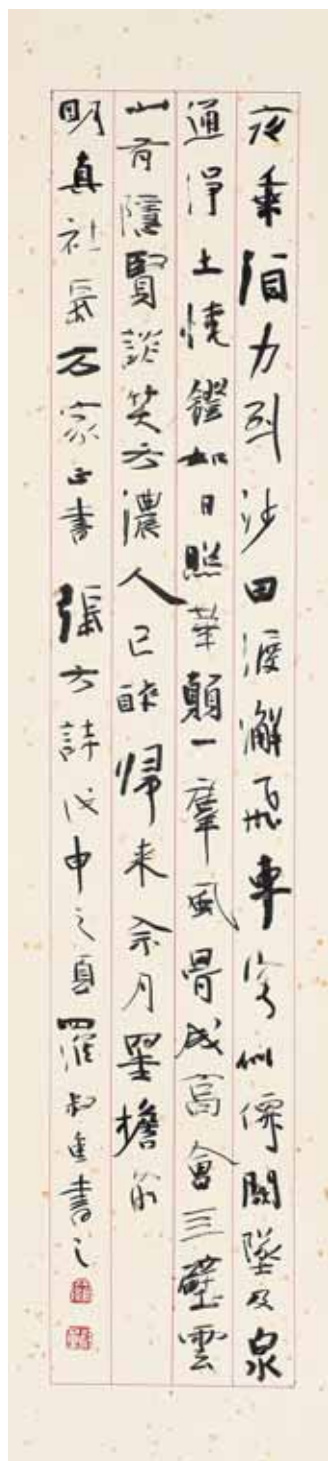 夜乘陌力到沙田浪澥飛車安似僊闢墜及泉
通淨土燒鐙如日照華顛一羣風骨成高會三壁雲
山有隱賢談笑方濃人已醉帰来月罣檐前
明真社長万家正書 張方詩戊申之夏羅叔重書之